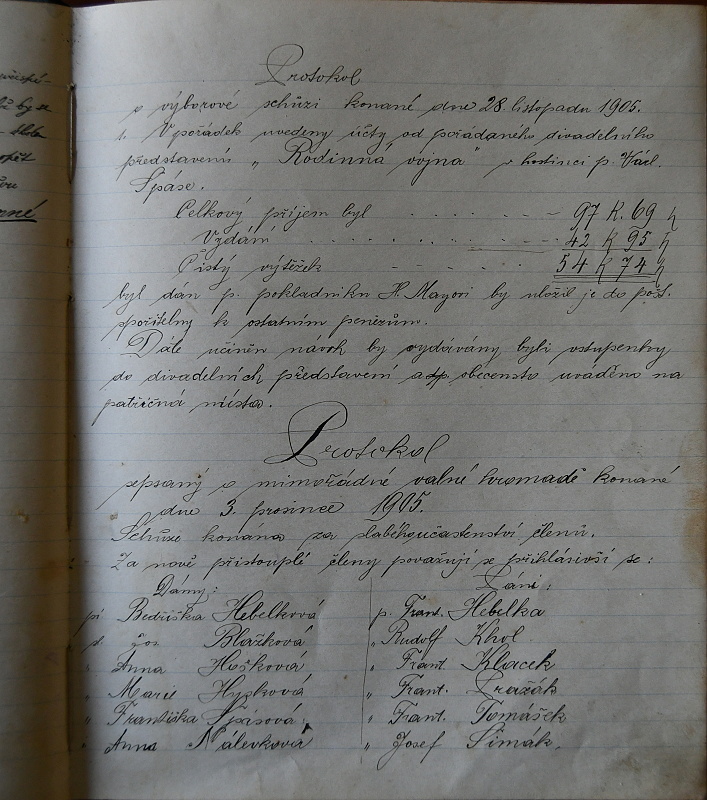 Protokol
o výborové schůzi konané dne 28. listopadu 1905.
1. V pořádek uvedeny účty od pořádaného divadelního
představení „Rodinná vojna" v hostinci p. Václ.
Špáse.
Celkový příjem byl 97 K. 69 h
Vydání 42 K 95 h
Čistý výtěžek 54 K 74 h
byl dán p. pokladníku H. Mayovi by uložil je do pošt.
spořitelny k ostatním penězům.
Dále učiněn návrh by vydávány byli vstupenky
do divadelních představení a obecenstvo uváděno na
patřičná místa.
Protokol
sepsaný o mimořádné valné hromadě konané
dne 3. prosince 1905.
Schůze konána za slabého účastenství členů.
Za nově přistouplé členy považují se přihlásivší se:
Dámy: Páni:
pí Bedřiška Hebelková p. Frant. Hebelka
sl Jos. Blažková „ Rudolf Khol
„ Anna Hošková „ Frant. Klacek
„ Marie Hyšková „ Frant. Pražák
„ Františka Špásová „ Frant. Tomášek
„ Anna Nálevková „ Josef Šimák.